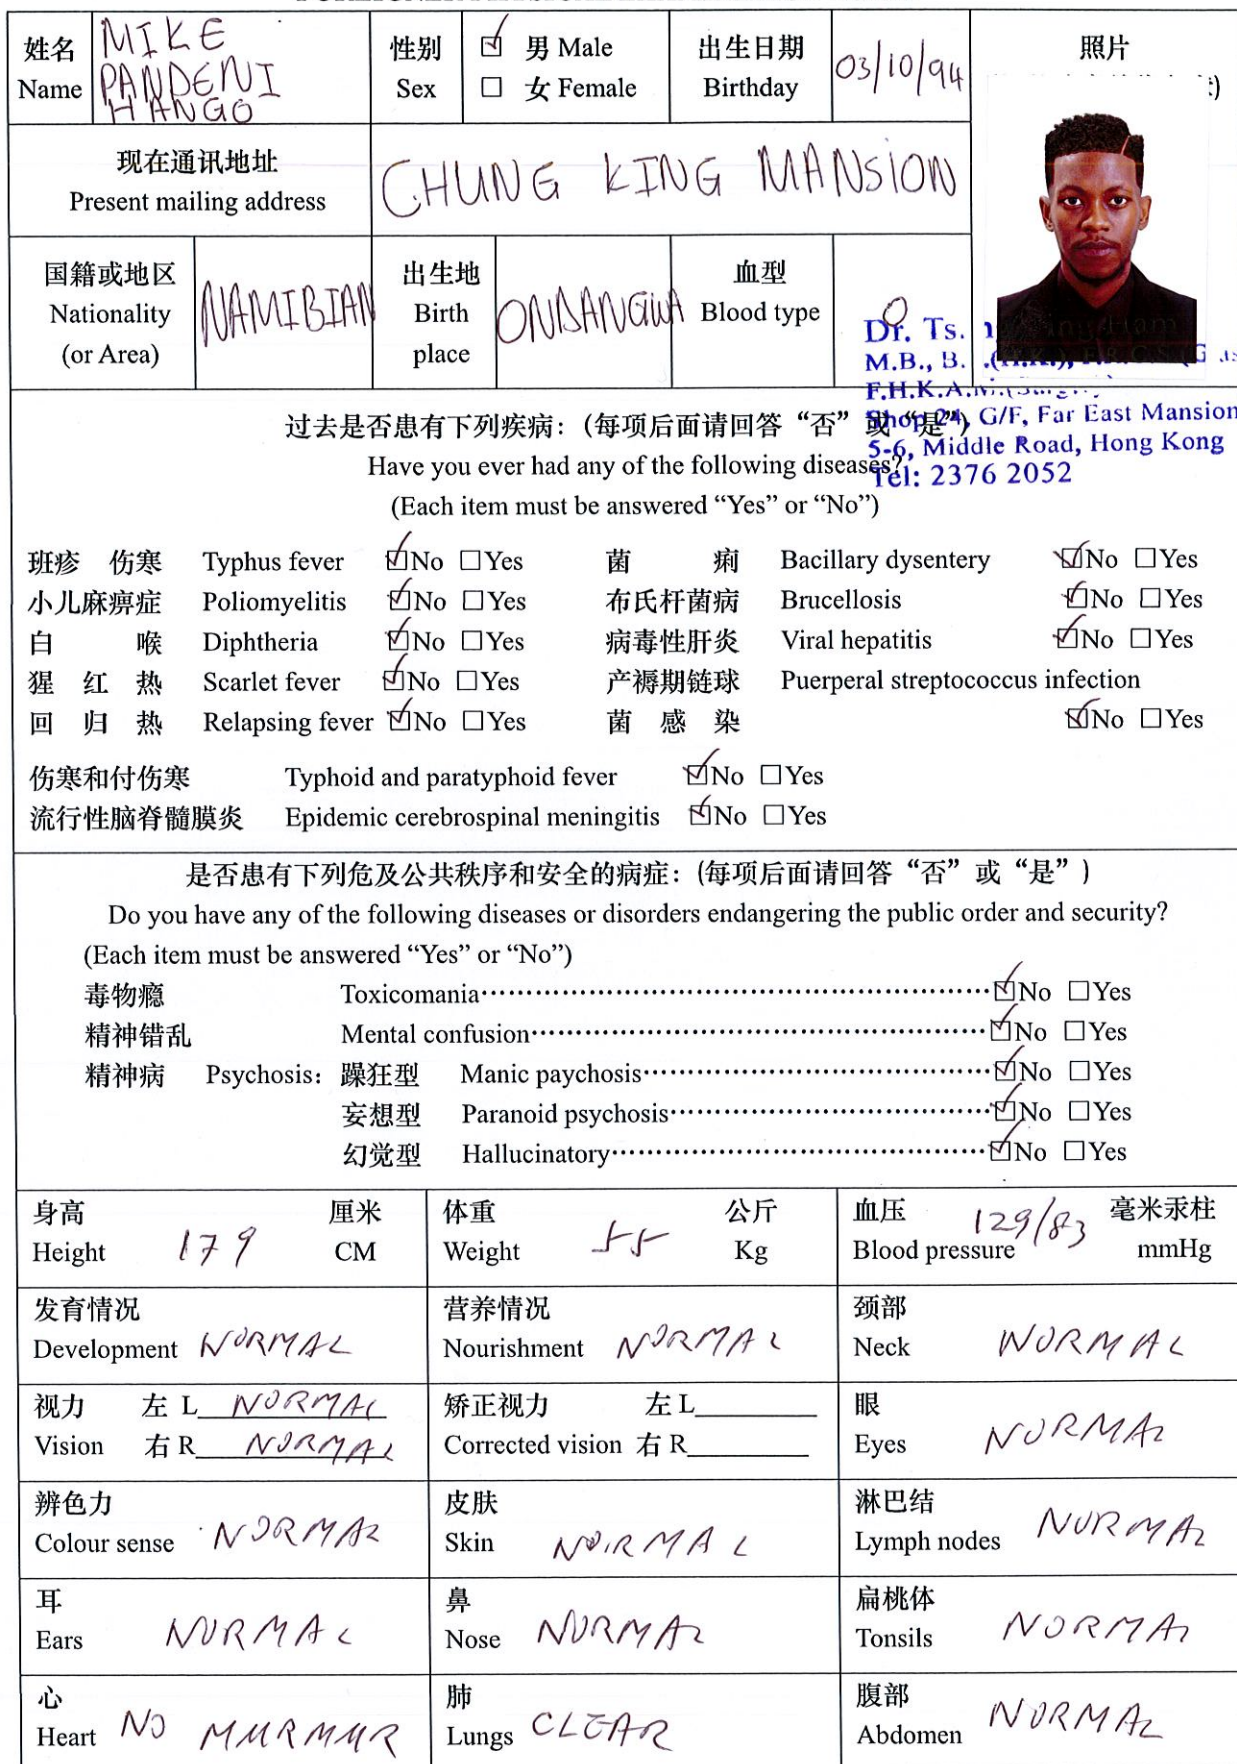 姓名 Name MIKE PANDENI HANGO
性别 Sex ☑ 男 Male ☐ 女 Female
出生日期 Birthday 03/10/94
照片
现在通讯地址
Present mailing address CHUNG KING MANSION
国籍或地区 Nationality (or Area) NAMIBIAN
出生地 Birth place ONDANGWA
血型 Blood type O
Dr. Ts
M.B., B.
F.H.K.A.M.
Shop 24, G/F, Far East Mansion
5-6, Middle Road, Hong Kong
Tel: 2376 2052
过去是否患有下列疾病：(每项后面请回答“否”或“是”)
Have you ever had any of the following diseases?
(Each item must be answered “Yes” or “No”)
班疹 伤寒 Typhus fever ☑No ☐Yes 菌 痢 Bacillary dysentery ☑No ☐Yes
小儿麻痹症 Poliomyelitis ☑No ☐Yes 布氏杆菌病 Brucellosis ☑No ☐Yes
白 喉 Diphtheria ☑No ☐Yes 病毒性肝炎 Viral hepatitis ☑No ☐Yes
猩 红 热 Scarlet fever ☑No ☐Yes 产褥期链球 Puerperal streptococcus infection
回 归 热 Relapsing fever ☑No ☐Yes 菌 感 染 ☑No ☐Yes
伤寒和付伤寒 Typhoid and paratyphoid fever ☑No ☐Yes
流行性脑脊髓膜炎 Epidemic cerebrospinal meningitis ☑No ☐Yes
是否患有下列危及公共秩序和安全的病症：(每项后面请回答“否”或“是”)
Do you have any of the following diseases or disorders endangering the public order and security?
(Each item must be answered “Yes” or “No”)
毒物瘾 Toxicomania ☑No ☐Yes
精神错乱 Mental confusion ☑No ☐Yes
精神病 Psychosis: 躁狂型 Manic paychosis ☑No ☐Yes
妄想型 Paranoid psychosis ☑No ☐Yes
幻觉型 Hallucinatory ☑No ☐Yes
身高 Height 179 厘米 CM
体重 Weight 55 公斤 Kg
血压 Blood pressure 129/83 毫米汞柱 mmHg
发育情况 Development NORMAL
营养情况 Nourishment NORMAL
颈部 Neck NORMAL
视力 Vision 左 L NORMAL 右 R NORMAL
矫正视力 Corrected vision 左 L 右 R
眼 Eyes NORMAL
辨色力 Colour sense NORMAL
皮肤 Skin NORMAL
淋巴结 Lymph nodes NORMAL
耳 Ears NORMAL
鼻 Nose NORMAL
扁桃体 Tonsils NORMAL
心 Heart NO MURMUR
肺 Lungs CLEAR
腹部 Abdomen NORMAL